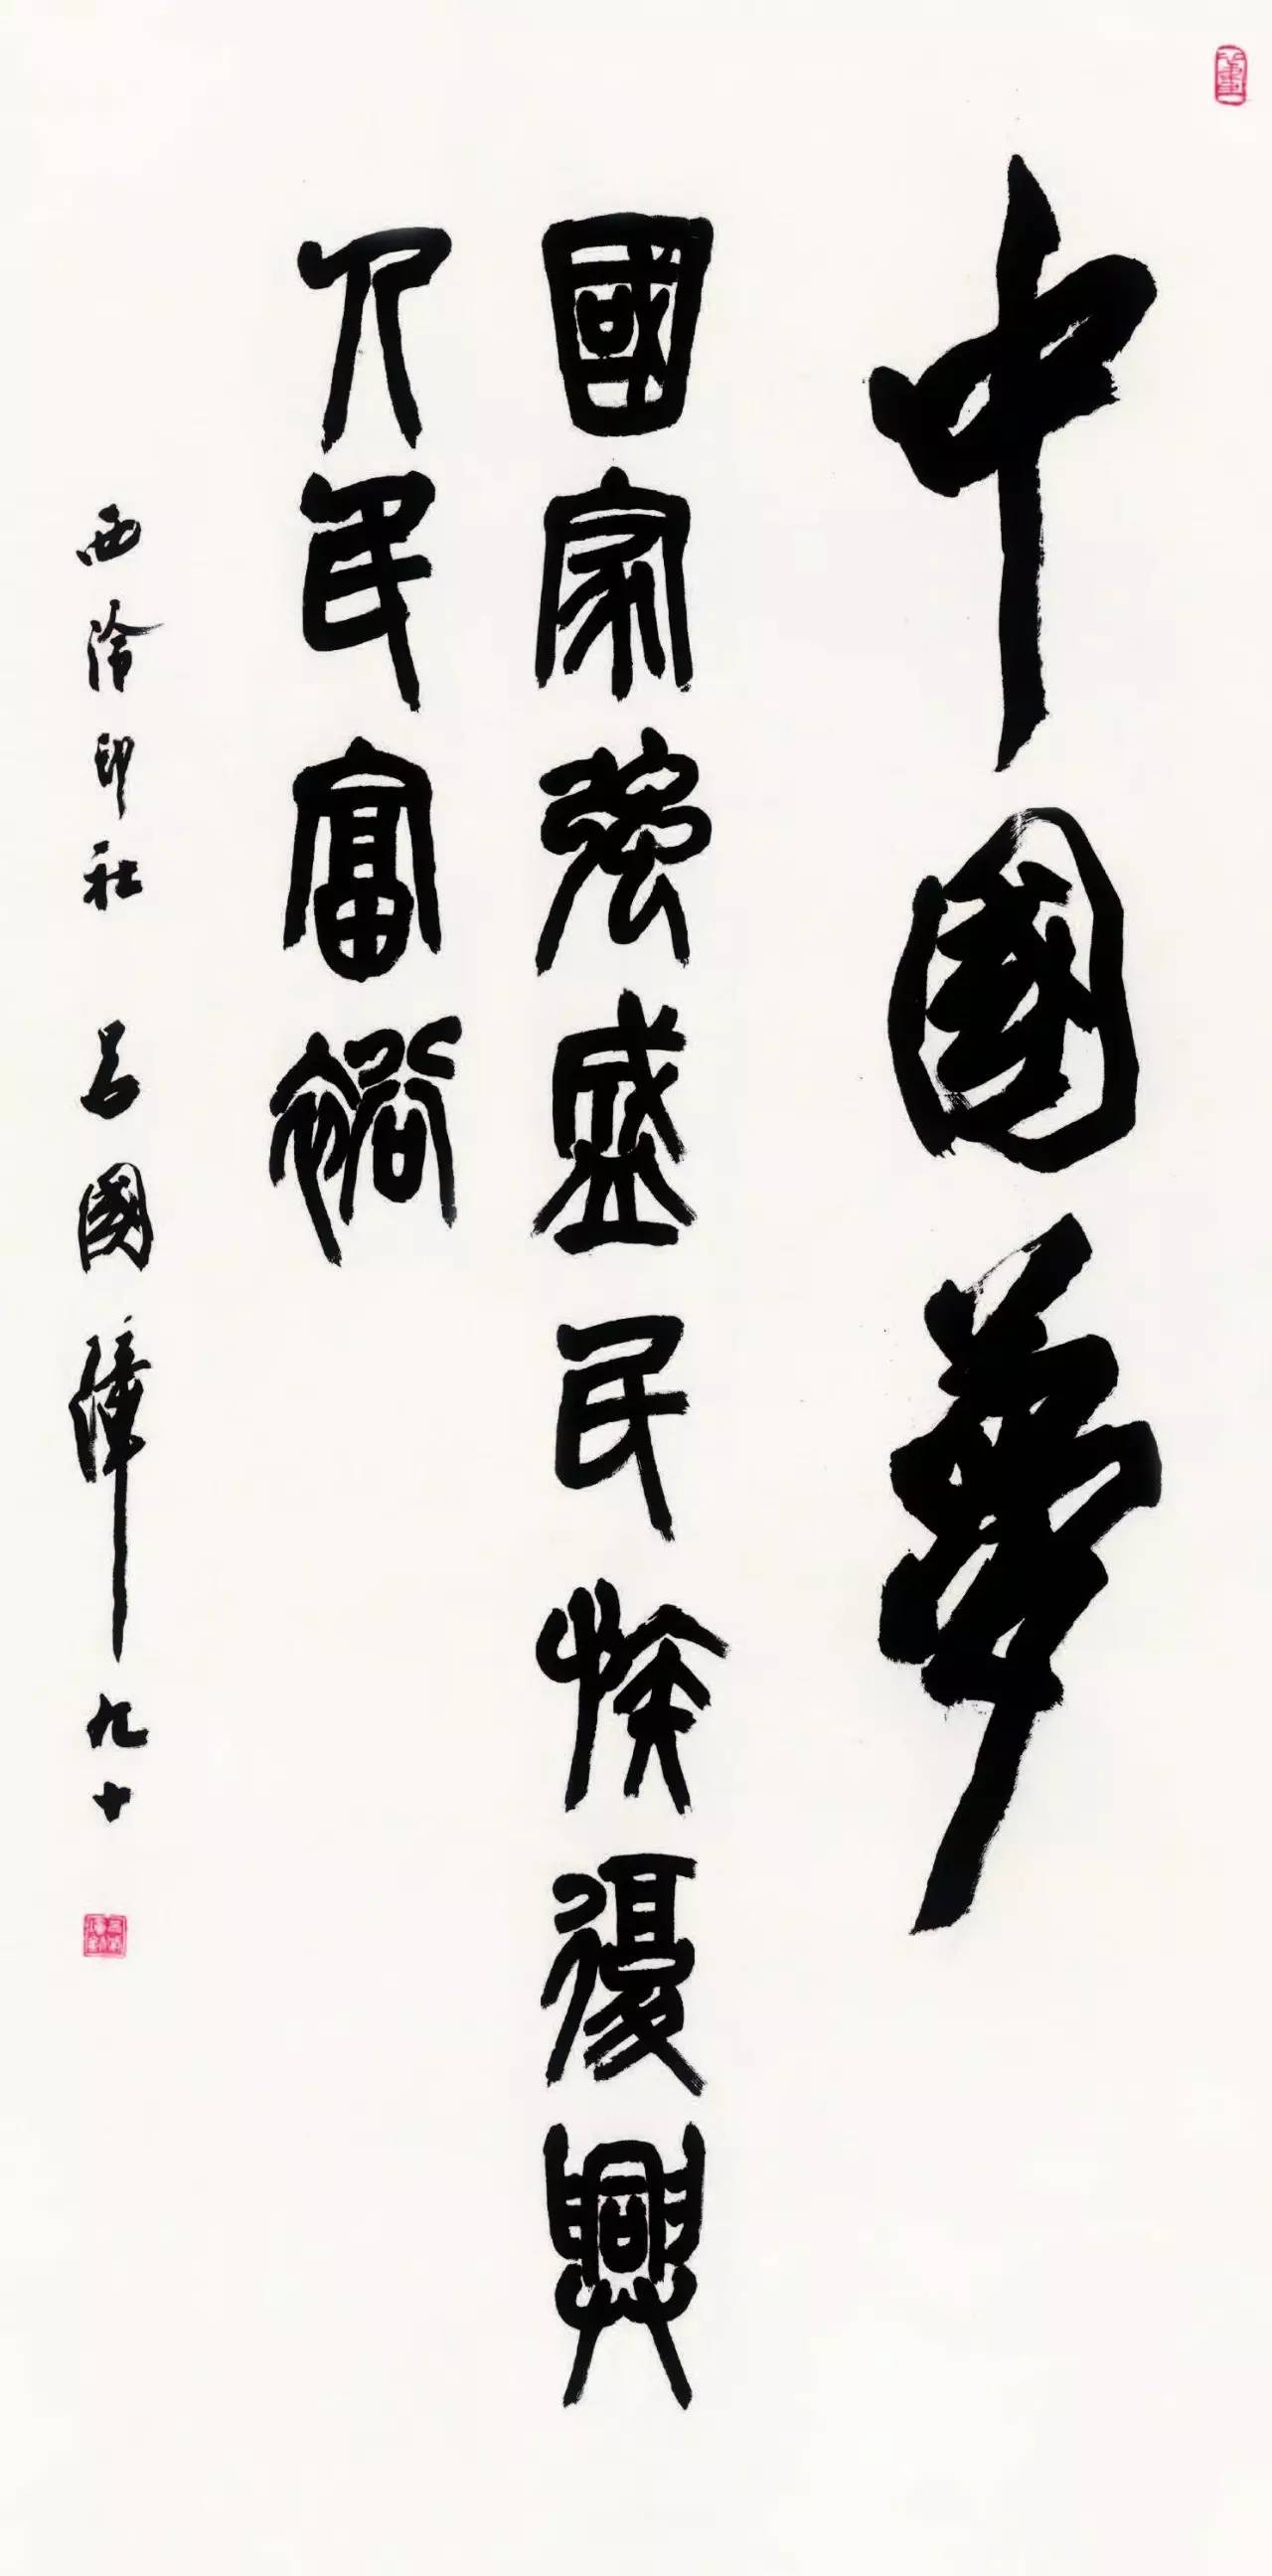 中國夢
國家强盛民族復興
人民富裕
西泠印社 吕國璋 九十